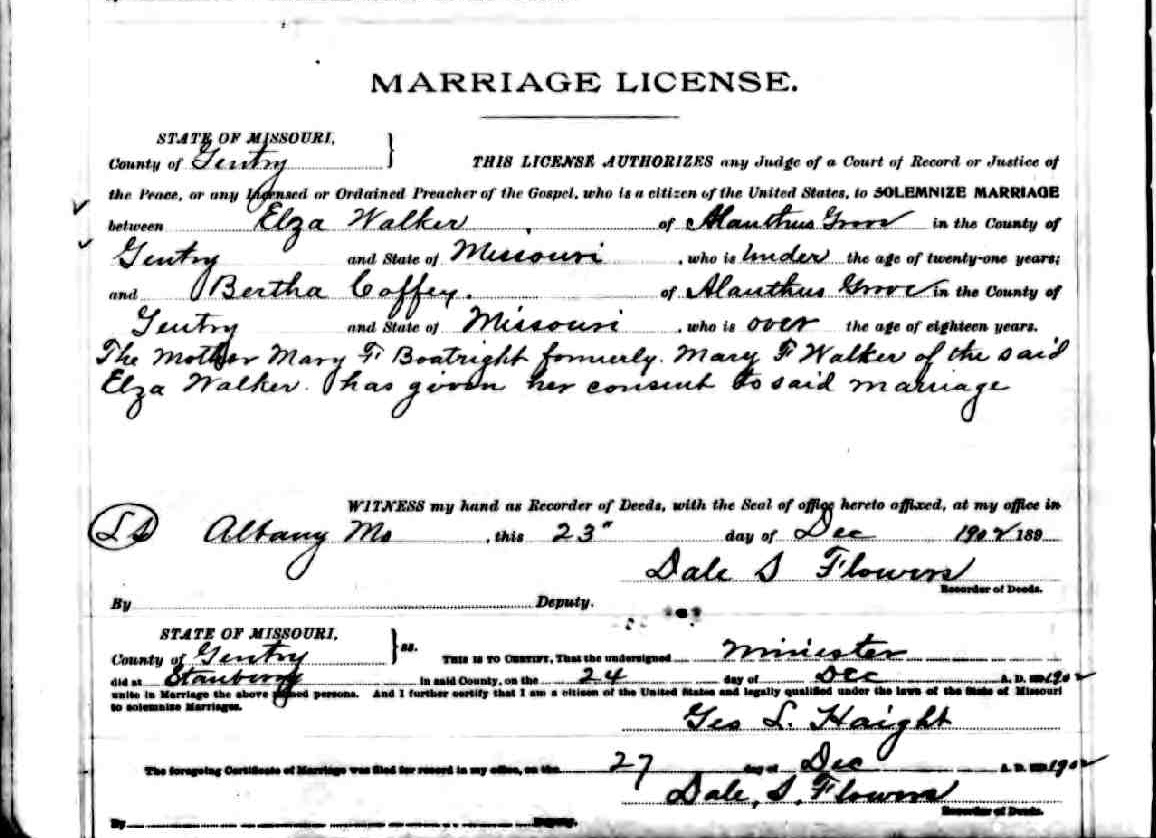 MARRIAGE LICENSE.
STATE OF MISSOURI,
County of Gentry } THIS LICENSE AUTHORIZES any Judge of a Court of Record or Justice of
the Peace, or any Licensed or Ordained Preacher of the Gospel, who is a citizen of the United States, to SOLEMNIZE MARRIAGE
between Elza Walker of Alanthus Grove in the County of
Gentry and State of Missouri, who is under the age of twenty-one years;
and Bertha Coffey. of Alanthus Grove in the County of
Gentry and State of Missouri, who is over the age of eighteen years.
The Mother Mary F Boatright formerly. Mary F Walker of the said
Elza Walker. has given her consent to said marriage
WITNESS my hand as Recorder of Deeds, with the Seal of office hereto affixed, at my office in
LS Albany Mo, this 23" day of Dec 1902 189
Dale S Flowers
Recorder of Deeds.
By Deputy.
STATE OF MISSOURI,
County of Gentry } ss. THIS IS TO CERTIFY, That the undersigned Minister
did at Stanberry in said County, on the 24 day of Dec A. D. 1902
unite in Marriage the above named persons. And I further certify that I am a citizen of the United States and legally qualified under the laws of the State of Missouri
to solemnize Marriages.
Geo L. Haight
The foregoing Certificate of Marriage was filed for record in my office, on the 27 day of Dec A. D. 1902
Dale, S, Flowers
Recorder of Deeds.
By Deputy.